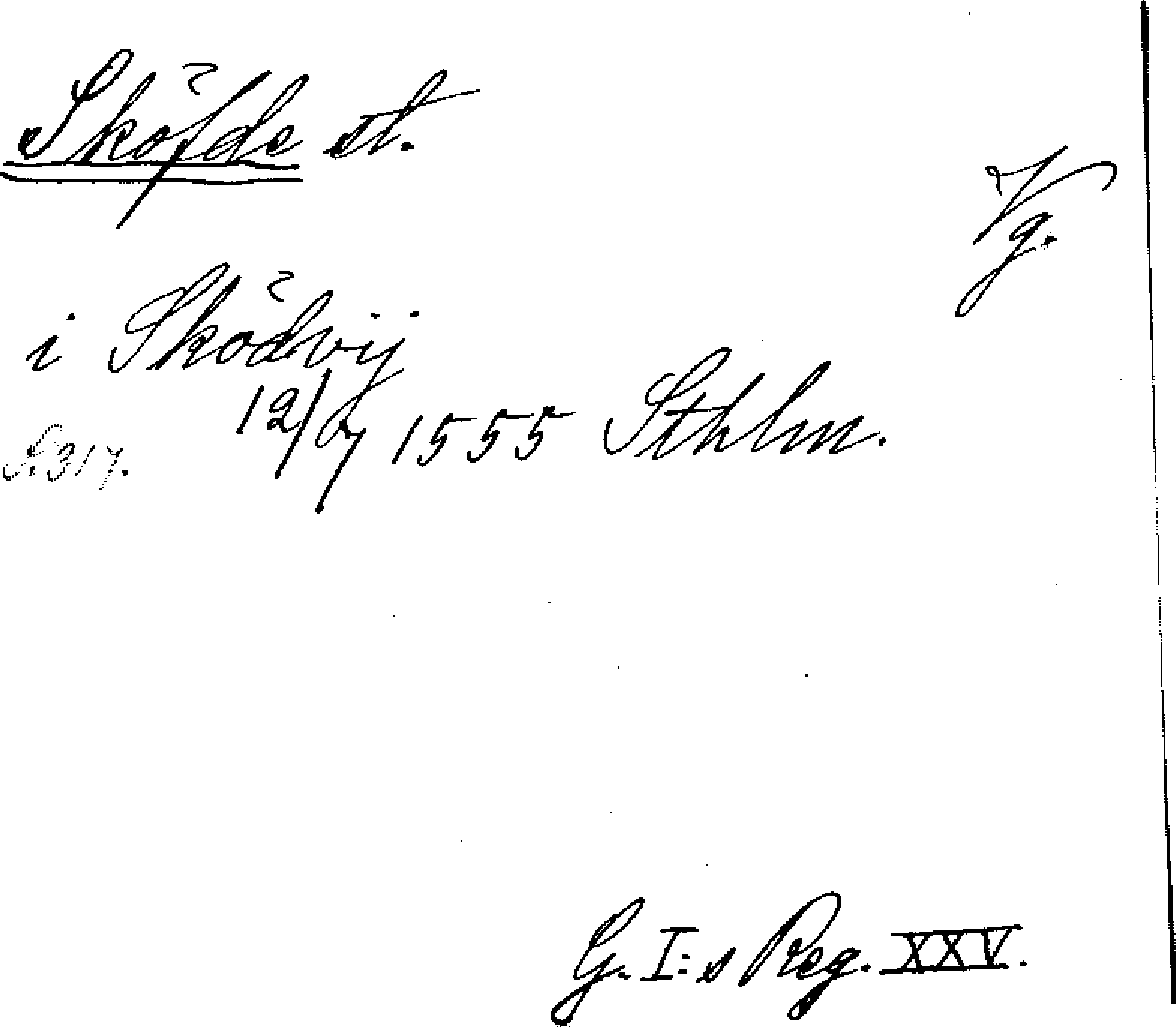 Sköfde st.
Vg.
i Sködvij
12/7 1555 Sthlm.
s. 317.
G. I:s Reg. XXV.